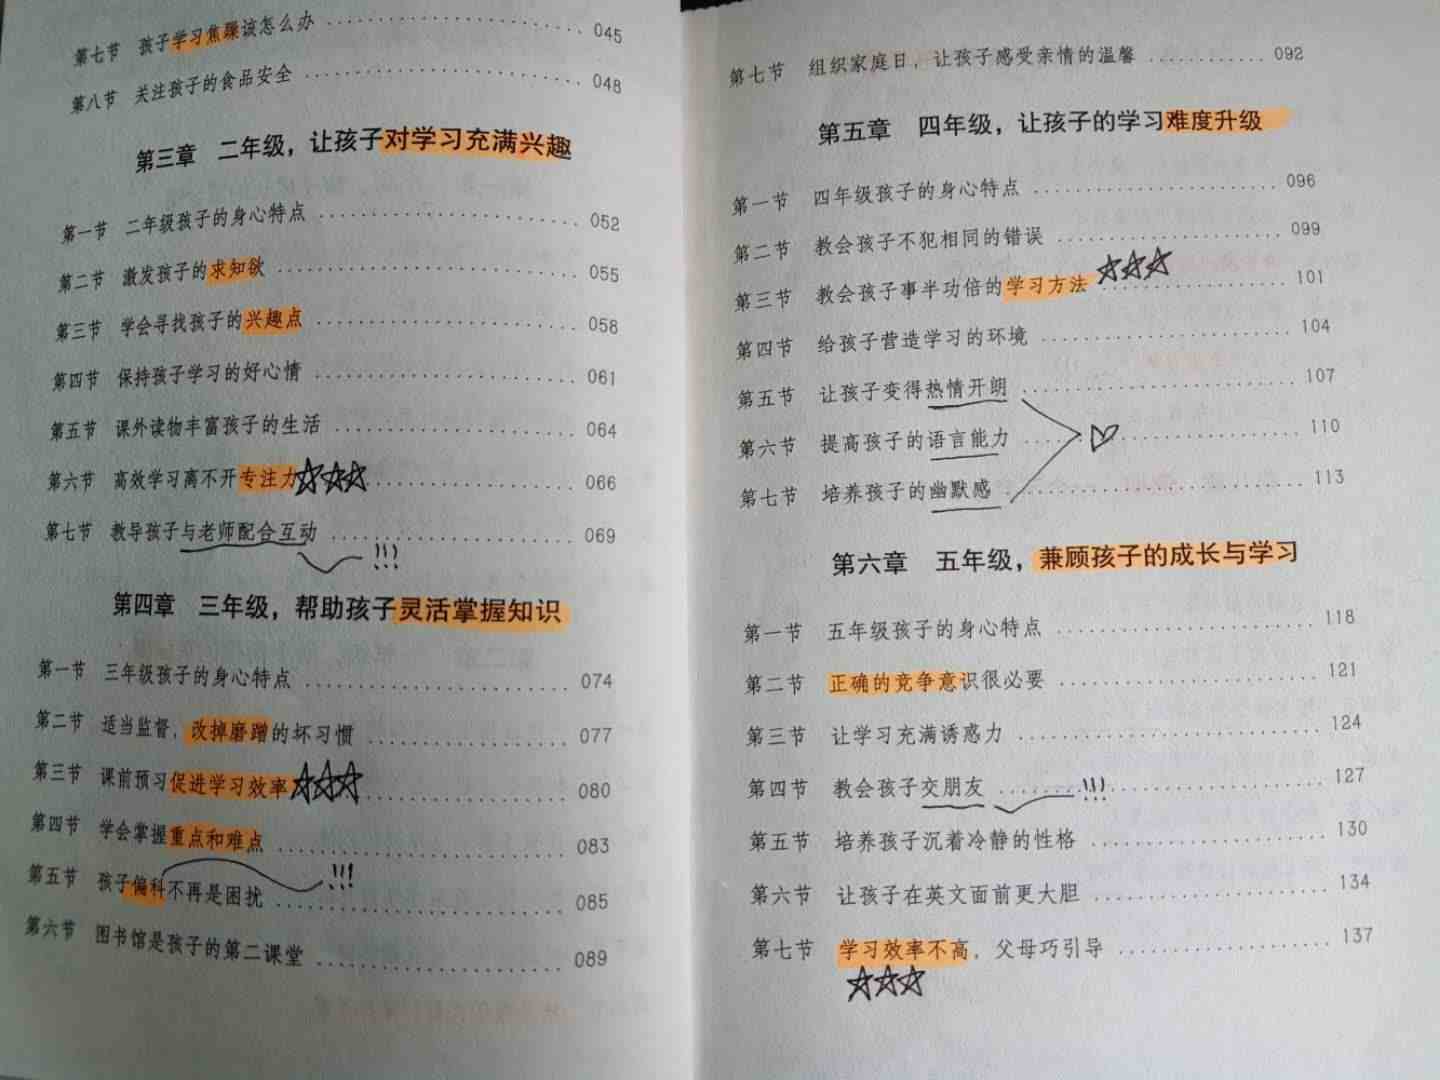 第七节 孩子学习焦躁该怎么办 045
第八节 关注孩子的食品安全 048
第三章 二年级，让孩子对学习充满兴趣
第一节 二年级孩子的身心特点 052
第二节 激发孩子的求知欲 055
第三节 学会寻找孩子的兴趣点 058
第四节 保持孩子学习的好心情 061
第五节 课外读物丰富孩子的生活 064
第六节 高效学习离不开专注力 066
第七节 教导孩子与老师配合互动 069
!!!
第四章 三年级，帮助孩子灵活掌握知识
第一节 三年级孩子的身心特点 074
第二节 适当监督，改掉磨蹭的坏习惯 077
第三节 课前预习促进学习效率 080
第四节 学会掌握重点和难点 083
!!!
第五节 孩子偏科不再是困扰 085
第六节 图书馆是孩子的第二课堂 089
第七节 组织家庭日，让孩子感受亲情的温馨 092
第五章 四年级，让孩子的学习难度升级
第一节 四年级孩子的身心特点 096
第二节 教会孩子不犯相同的错误 099
第三节 教会孩子事半功倍的学习方法 101
第四节 给孩子营造学习的环境 104
第五节 让孩子变得热情开朗 107
第六节 提高孩子的语言能力 110
第七节 培养孩子的幽默感 113
第六章 五年级，兼顾孩子的成长与学习
第一节 五年级孩子的身心特点 118
第二节 正确的竞争意识很必要 121
第三节 让学习充满诱惑力 124
第四节 教会孩子交朋友 !!! 127
第五节 培养孩子沉着冷静的性格 130
第六节 让孩子在英文面前更大胆 134
第七节 学习效率不高，父母巧引导 137